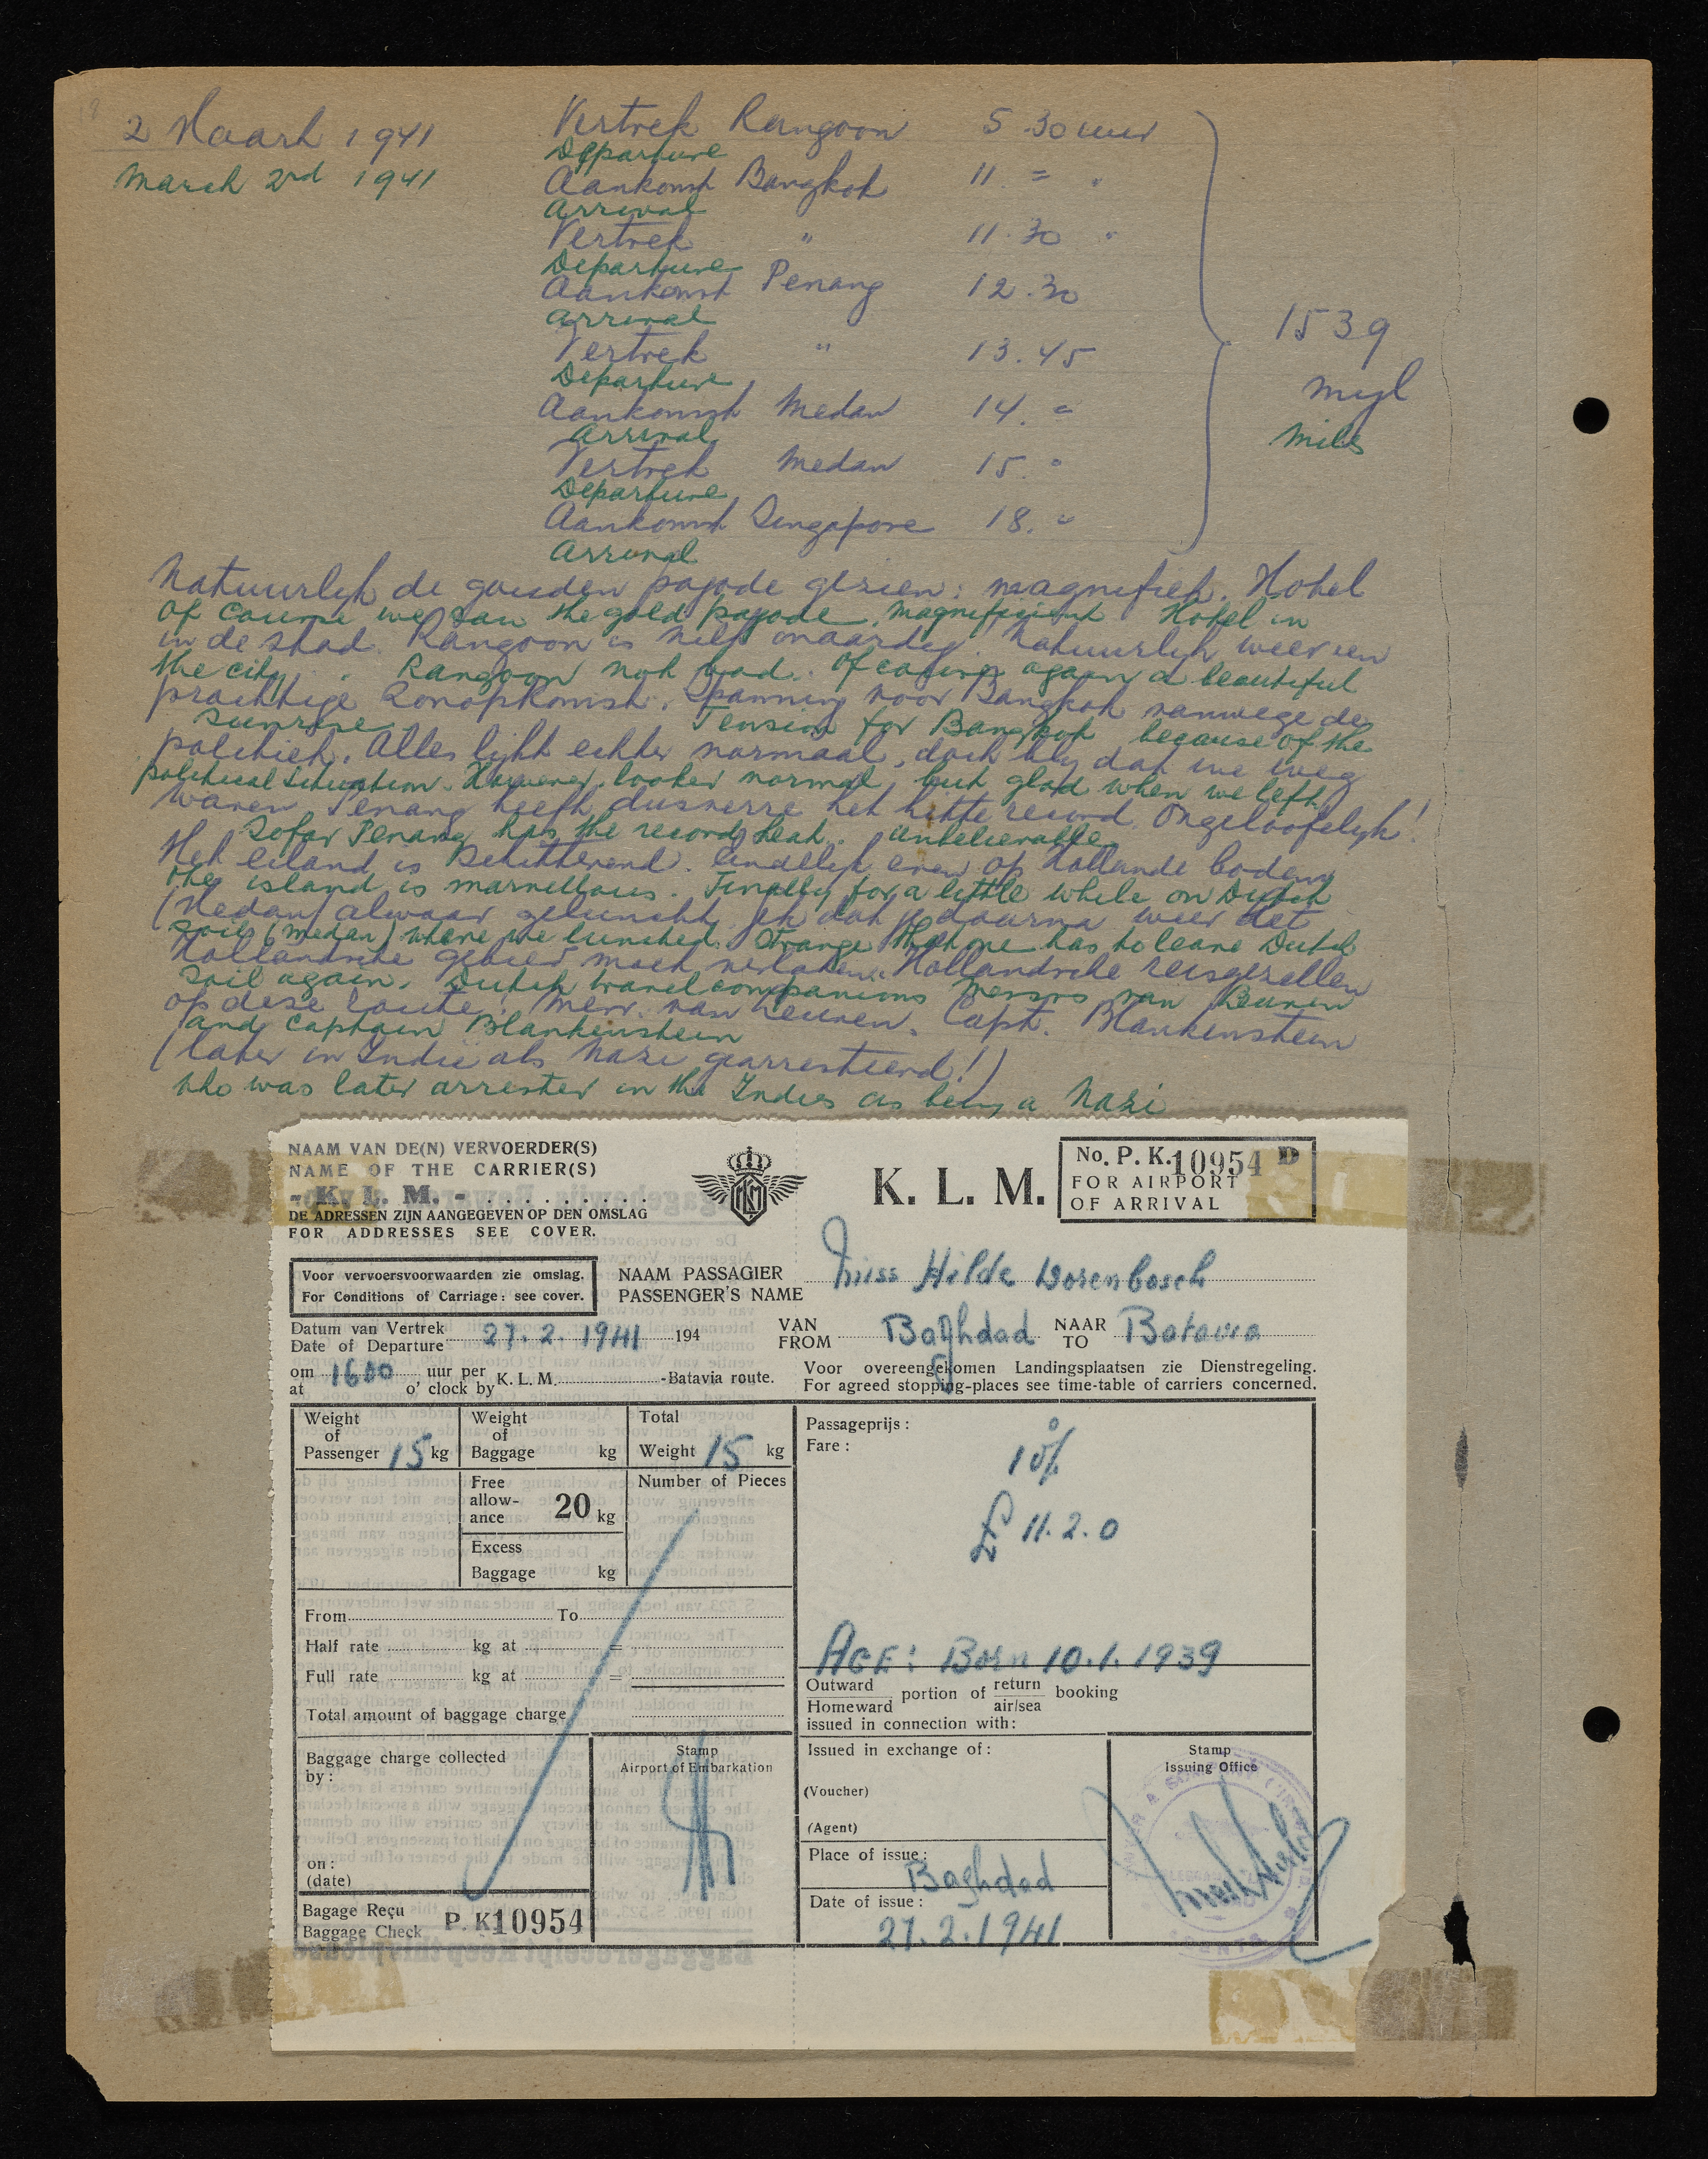 2 Maart 1941 Vertrek Rangoon 5 30 uur
March 2nd 1941 Departure
Aankomst Bangkok 11. = "
Arrival
Vertrek " 11.30 "
Departure
Aankomst Penang 12.30
Arrival
Vertrek " 13.45
Departure
Aankomst Medan 14. =
Arrival
Vertrek Medan 15. "
Departure
Aankomst Singapore 18. "
Arrival
1539
myl
miles
Natuurlyk de gouden pagode gezien: magnifiek. Hotel
Of course we saw the gold pagode. Magnificient Hotel in
in de stad. Rangoon is niet onaardig. Natuurlyk weer een
the city. Rangoon not bad. Of course again a beautiful
prachtige zonopkomst. Spanning voor Bangkok vanwege de
sunrise Tension for Bangkok because of the
politiek. Alles lijkt echter normaal, doch bly dat we weg
political situation. However looked normal but glad when we left
waren. Penang heeft dusverre het hitte record. Ongeloofelyk!
Sofar Penang has the record heat. unbelievable
Het eiland is schitterend. Eindelyk even op Hollands bodem
the island is marvellous. Finally for a little while on Dutch
(Medan) alwaar geluncht. dat je daarna weer het
soil (Medan) where we lunched. Strange that one has to leave Dutch
Hollandsche gebied moet verlaten. Hollandsche reisgezellen
soil again. Dutch travel companions Messrs van Beuren
op deze route: Mevr. van Beuren. Capt. Blankenstein
and Captain Blankenstein
(later in Indië als Nazi gearresteerd!)
who was later arrested in the Indies as being a Nazi
NAAM VAN DE(N) VERVOERDER(S)
NAME OF THE CARRIER(S)
- K. L. M. -
DE ADRESSEN ZIJN AANGEGEVEN OP DEN OMSLAG
FOR ADDRESSES SEE COVER.
KLM
K. L. M.
No. P. K. 10954 D
FOR AIRPORT
OF ARRIVAL
Voor vervoersvoorwaarden zie omslag.
For Conditions of Carriage: see cover.
NAAM PASSAGIER
PASSENGER'S NAME Miss Hilde Dorenbosch
Datum van Vertrek
Date of Departure 27. 2. 1941 194
VAN
FROM Baghdad NAAR
TO Batavia
om
at 1600 uur per
o' clock by K. L. M. -Batavia route.
Voor overeengekomen Landingsplaatsen zie Dienstregeling.
For agreed stopping-places see time-table of carriers concerned.
Weight
of
Passenger 15 kg
Weight
of
Baggage kg
Total
Weight 15 kg
Free
allow-
ance 20 kg
Number of Pieces
Excess
Baggage kg
From To
Half rate kg at =
Full rate kg at =
Total amount of baggage charge
Baggage charge collected
by:
on:
(date)
Stamp
Airport of Embarkation
Bagage Reçu
Baggage Check P. K 10954
Passageprijs:
Fare:
10%
£ 11. 2. 0
AGE: Born 10.1.1939
Outward
Homeward portion of return
air/sea booking
issued in connection with:
Issued in exchange of:
(Voucher)
(Agent)
Place of issue:
Baghdad
Date of issue:
27. 2. 1941
Stamp
Issuing Office